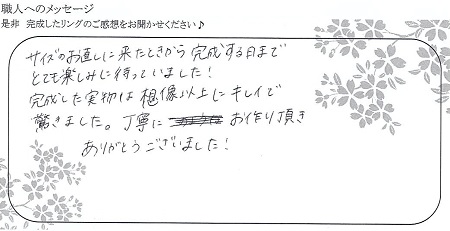 職人へのメッセージ
是非 完成したリングのご感想をお聞かせください♪
サイズのお直しに来たときから 完成する日まで
とても楽しみに待っていました！
完成した実物は 想像以上にキレイで
驚きました。丁寧に お作り頂き
ありがとうございました！